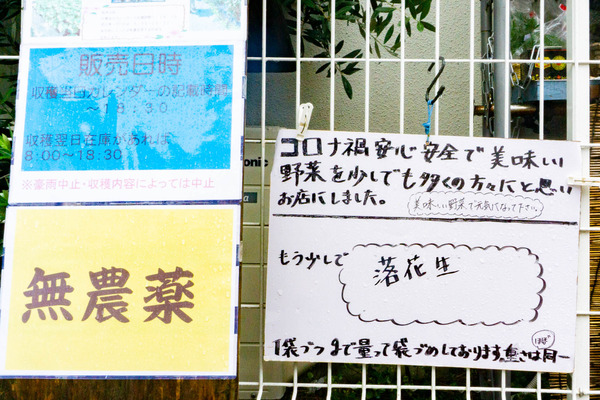 販売日時
収穫当日カレンダーの記載時間
～18:30
収穫翌日在庫があれば
8:00～18:30
※豪雨中止・収穫内容によっては中止
無農薬
onic
コロナ禍安心安全で美味しい
野菜を少しでも多くの方々にと思い
お店にしました。
美味しい野菜で元気になって下さい。
もう少しで
落花生
1袋づつgまで量って袋づめしております。重さはほぼ同一